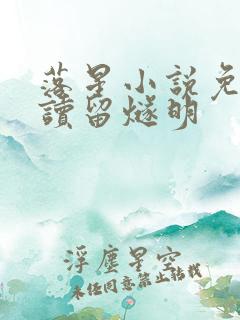 落星小说免
讀留燧明
浮塵星空
未经同意禁止转载